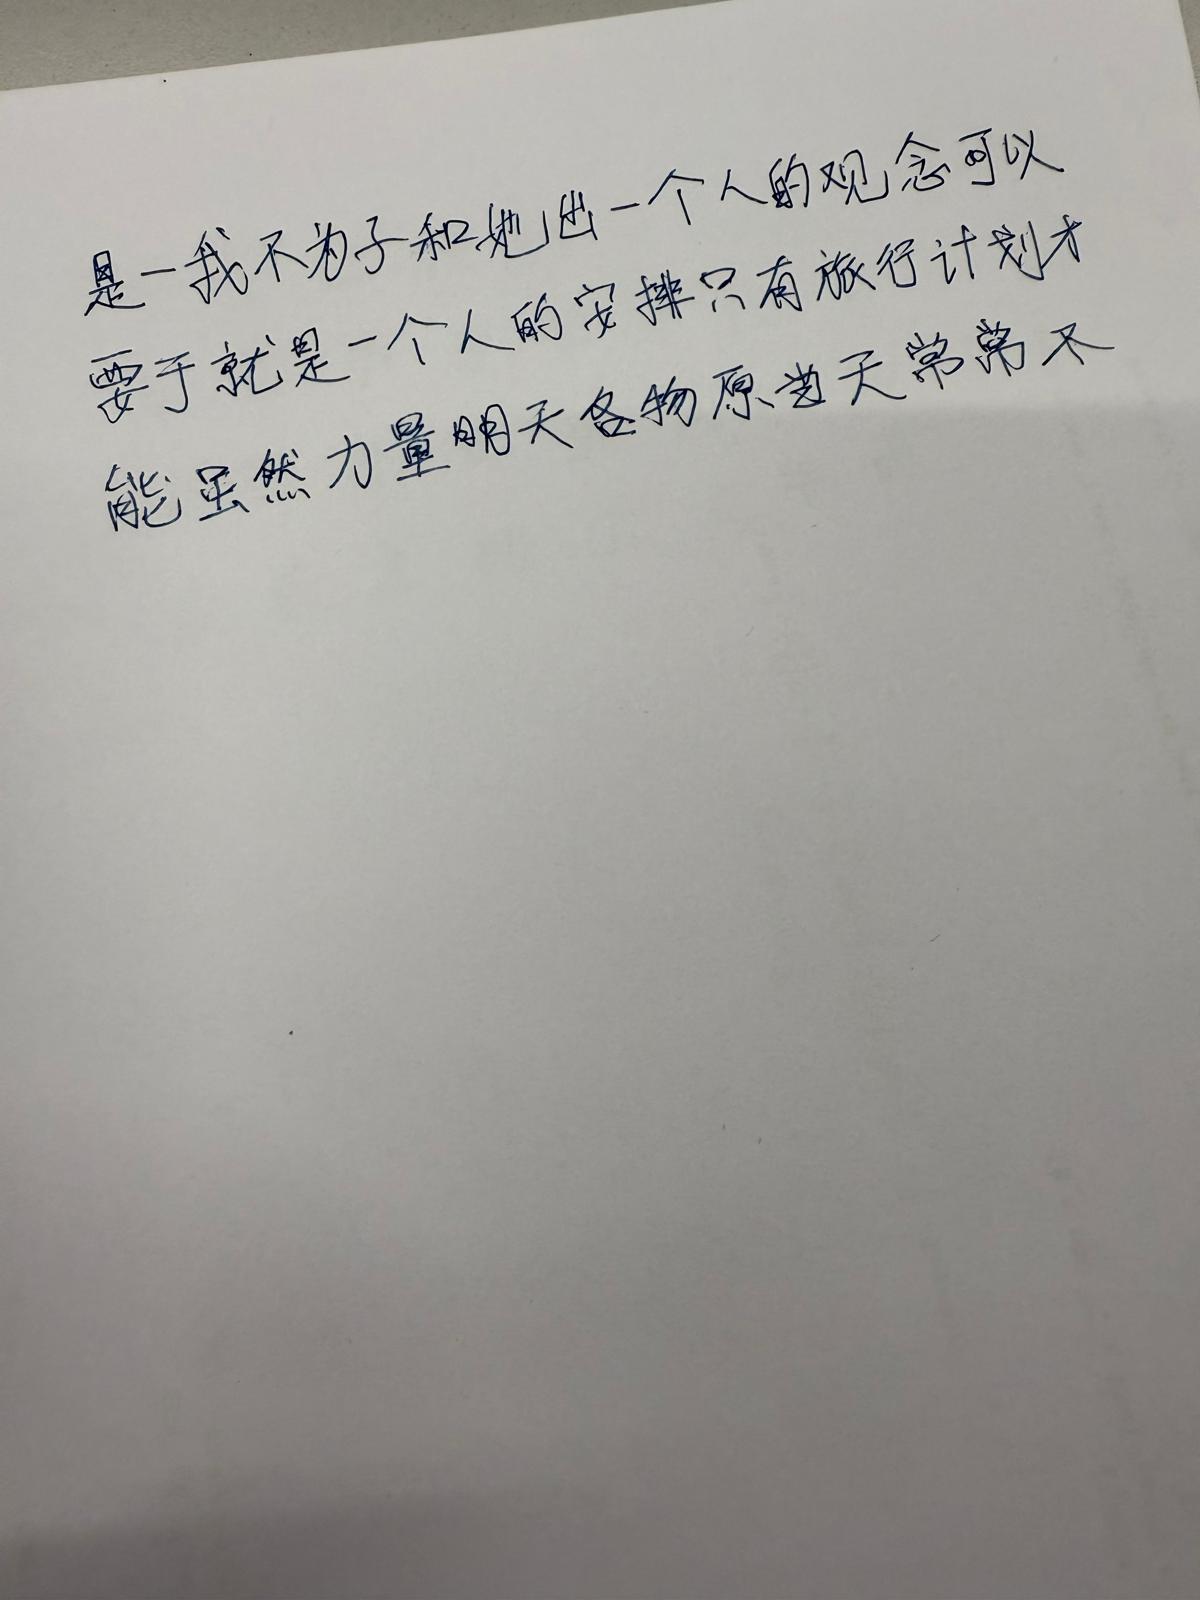 是一我不为子和她出一个人的观念可以
要于就是一个人的安排只有旅行计划才
能虽然力量明天各物原当天常常不